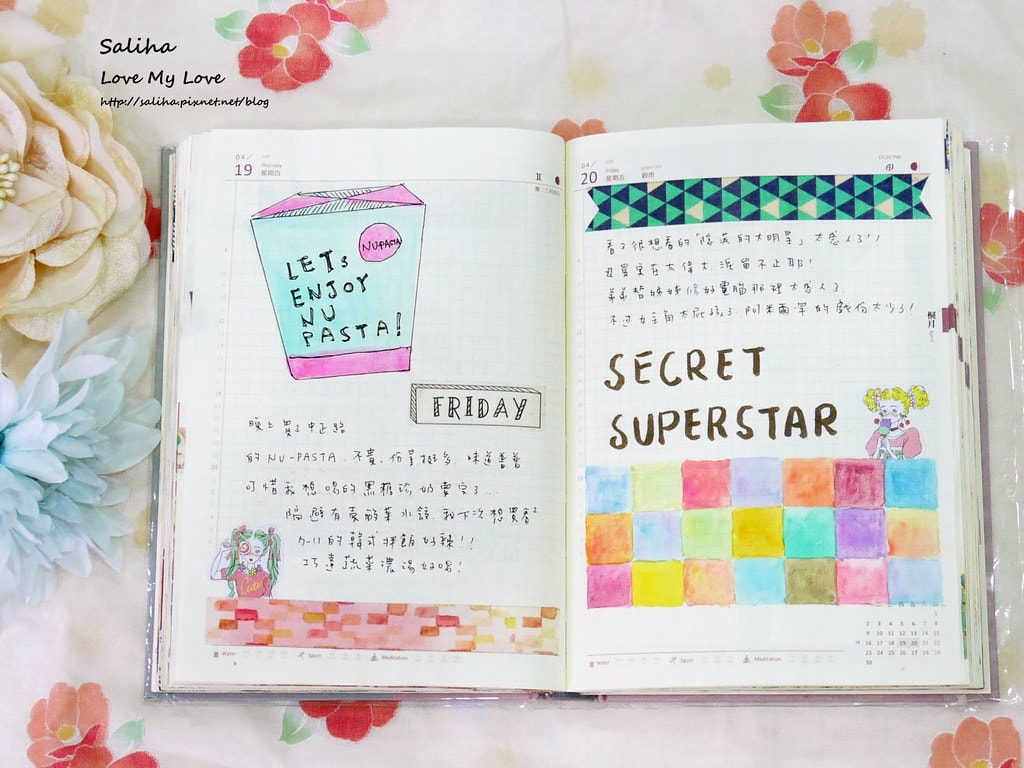 Saliha
Love My Love
http://saliha.pixnet.net/blog
04/
19
Thursday
星期四
NU-PASTA
LETs
ENJOY
NU
PASTA!
FRIDAY
晚上買了中正路
的 NU-PASTA 不貴、份量挺多、味道普普
可惜我想喝的黑糖珍奶賣完了...
隔壁有賣
我下次想買看看
7-11 的韓式拌飯好辣!!
巧達蔬菜濃湯好喝!
Water
Sport
Meditation
04/
20
Friday
星期五
穀雨
看了很想看的「隱藏的大明星」太感人了!!
母愛實在太偉大、淚留不止耶!
弟弟替姊姊修好電腦那裡太感人了
不過女主角太屁孩了、阿米爾罕的戲份太少了!
SECRET
SUPERSTAR
桐月
Water
Sport
Meditation
1
2 3 4 5 6 7 8
9 10 11 12 13 14 15
16 17 18 19 20 21 22
23 24 25 26 27 28 29
30